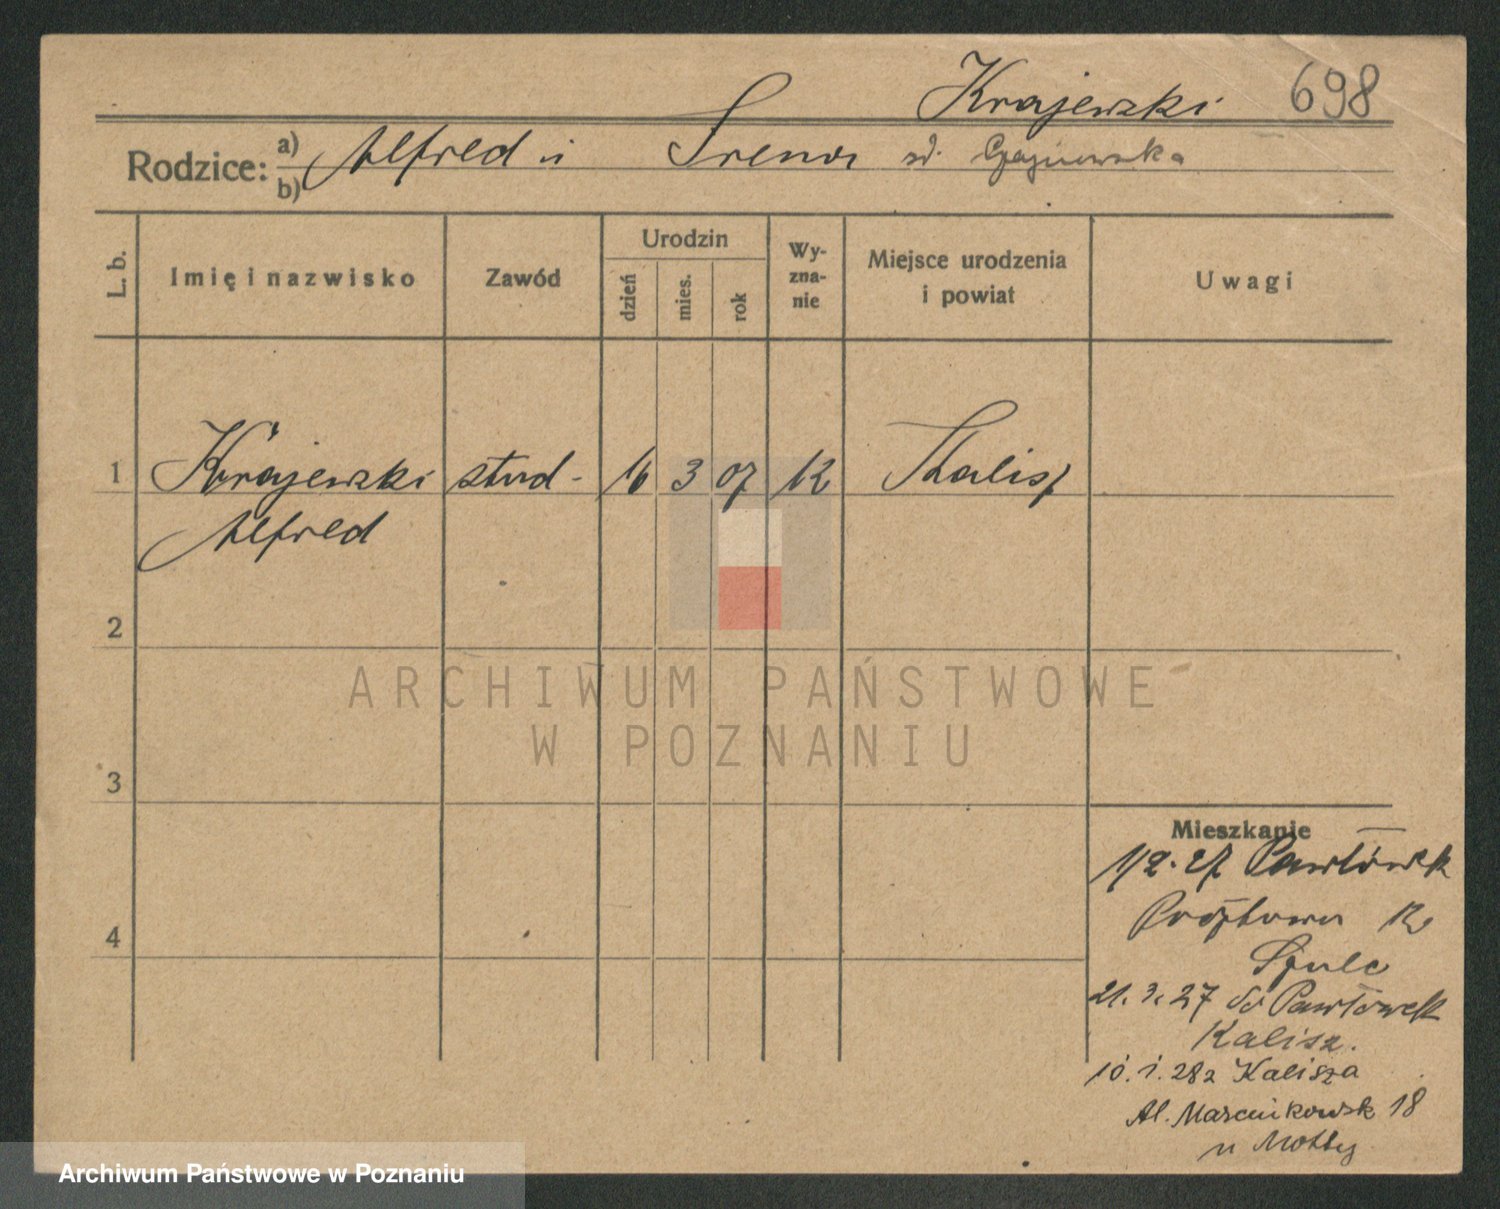 Krajewski 698
Rodzice: a) b) Alfred i Irena zd.
L. b.
Imię i nazwisko
Zawód
Urodzin
dzień
mies.
rok
Wy-
zna-
nie
Miejsce urodzenia
i powiat
Uwagi
1 Krajewski stud- 16 3 07 Kalisz
Alfred
2
3
4
ARCHIWUM PAŃSTWOWE
W POZNANIU
Mieszkanie
Pawłówek
Pocztowa
Szulc
21. 3. 27 do Pawłówek
Kalisz.
10. 1. 28 z Kalisza
Al. Marcinkowsk 18
u Motty
Archiwum Państwowe w Poznaniu